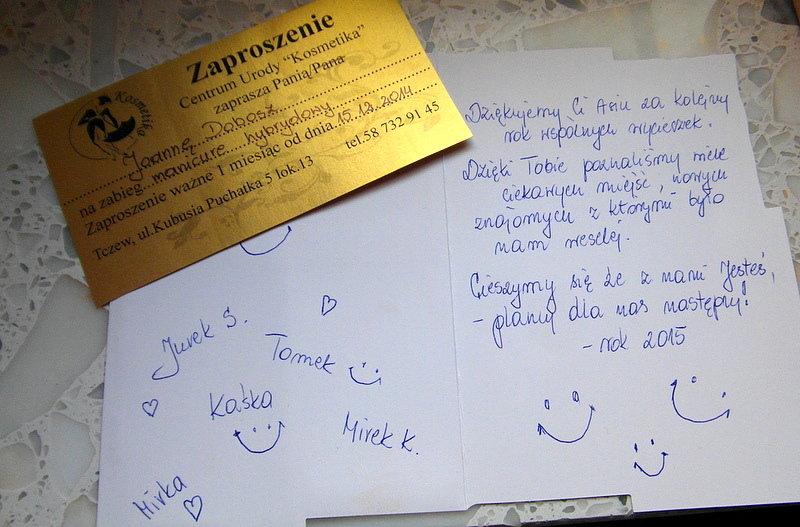 Zaproszenie
Centrum Urody "Kosmetika"
zaprasza Panią/Pana
Kosmetika
Joannę Dobosz
na zabieg manicure hybrydowy
Zaproszenie ważne 1 miesiąc od dnia 15.12.2014
Tczew, ul.Kubusia Puchatka 5 lok.13 tel.58 732 91 45
Jurek S.
Tomek
Kaśka
Mirek K.
Mirka
Dziękujemy Ci Asiu za kolejny
rok wspólnych wycieczek.
Dzięki Tobie poznaliśmy wiele
ciekawych miejsc, nowych
znajomych z którymi było
nam weselej.
Cieszymy się że z nami Jesteś,
- planuj dla nas następny!
- rok 2015